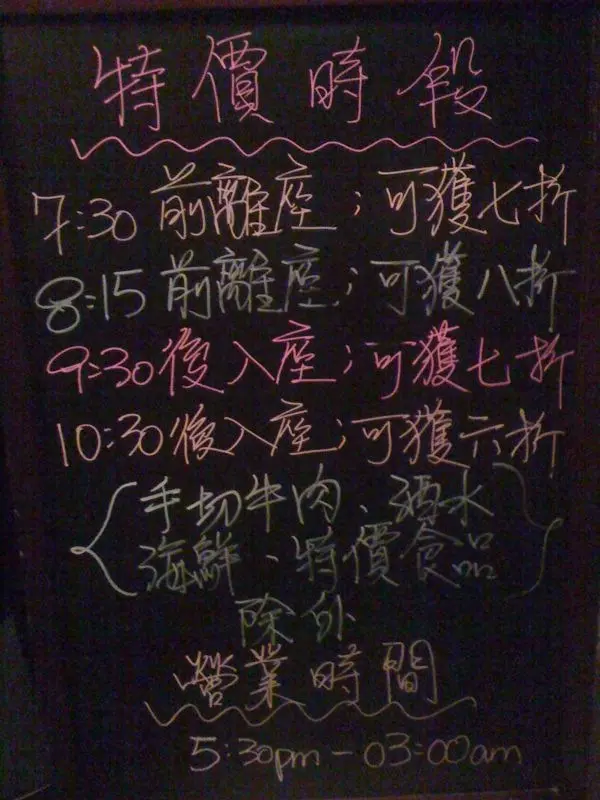 特價時段
7:30前離座;可獲七折
8:15前離座;可獲八折
9:30後入座;可獲七折
10:30後入座;可獲六折
(手切牛肉、酒水
海鮮、特價食品)
除外
營業時間
5:30pm-03:00am